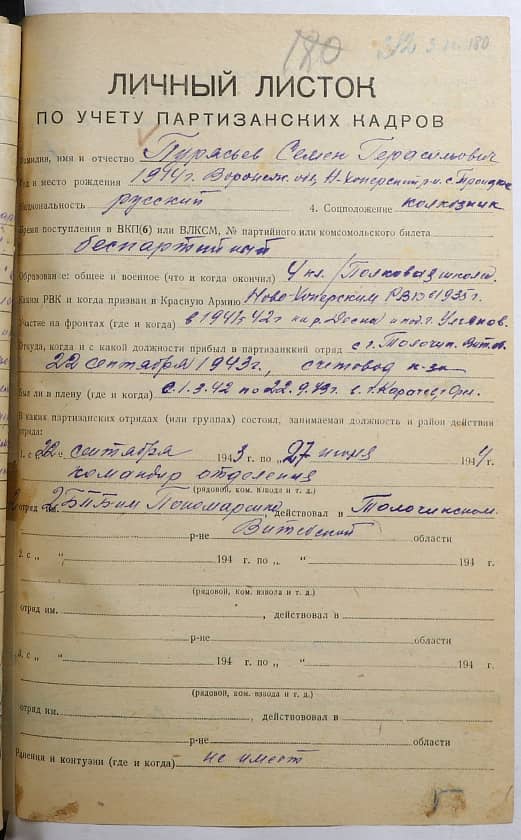 180
180
ЛИЧНЫЙ ЛИСТОК
ПО УЧЕТУ ПАРТИЗАНСКИХ КАДРОВ
Фамилия, имя и отчество Пурясьев Семен Герасимович
Год и место рождения 1914г. Воронеж. обл. Н. Хоперский р-н с. Троицкое
Национальность русский 4. Соцположение колхозник
Время поступления в ВКП(б) или ВЛКСМ, № партийного или комсомольского билета
беспартийный
Образование: общее и военное (что и когда окончил) 4 кл. Полковая школа
Каким РВК и когда призван в Красную Армию Ново-Хоперским РВК 1935г.
Участие на фронтах (где и когда) в 1941-42г на р. Десна и под г.
Откуда, когда и с какой должности прибыл в партизанский отряд с г. Толочин. Витеб.
22 сентября 1943г., счетовод к-за
Был ли в плену (где и когда) с 1.3.42 по 22.9.43г. в г. Карачев
В каких партизанских отрядах (или группах) состоял, занимаемая должность и район действия
отряда:
1. с 22 сентября 1943 г. по „27 июня 1944 г.
командир отделения
(рядовой, ком. взвода и т. д.)
отряд им. 2 Б-н Бим Пономаренко действовал в Толочинском
р-не Витебской области
2. с „ “ 194 г. по „ “ 194 г.
(рядовой, ком. взвода и т. д.)
отряд им. , действовал в
р-не области
3. с „ “ 194 г. по „ “ 194 г.
(рядовой, ком. взвода и т. д.)
отряд им. , действовал в
р-не области
Ранения и контузии (где и когда) не имеет